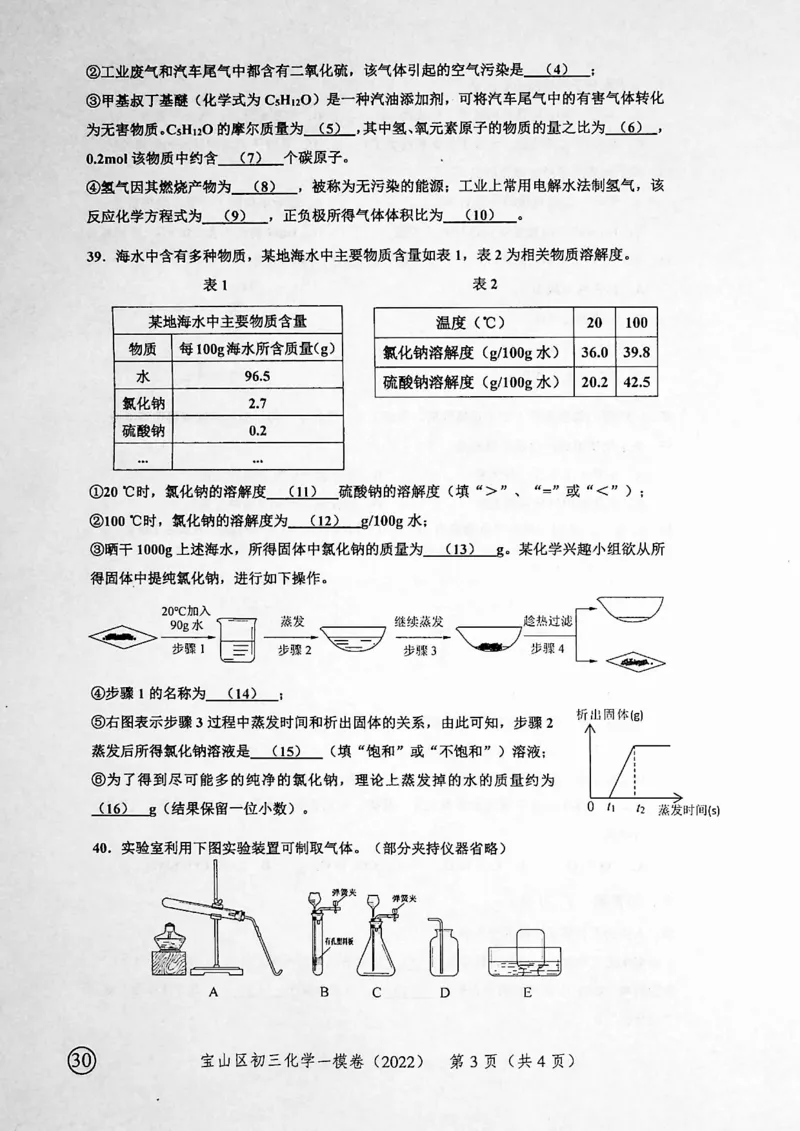 ②工业废气和汽车尾气中都含有二氧化硫，该气体引起的空气污染是 （4） ；
③甲基叔丁基醚（化学式为 C₅H₁₂O）是一种汽油添加剂，可将汽车尾气中的有害气体转化
为无害物质。C₅H₁₂O 的摩尔质量为 （5） ，其中氢、氧元素原子的物质的量之比为 （6） ，
0.2mol 该物质中约含 （7） 个碳原子。
④氢气因其燃烧产物为 （8） ，被称为无污染的能源；工业上常用电解水法制氢气，该
反应化学方程式为 （9） ，正负极所得气体体积比为 （10） 。
39．海水中含有多种物质，某地海水中主要物质含量如表 1，表 2 为相关物质溶解度。
表 1 表 2
某地海水中主要物质含量
物质 每100g海水所含质量(g)
水 96.5
氯化钠 2.7
硫酸钠 0.2
... ...
温度（℃） 20 100
氯化钠溶解度（g/100g 水） 36.0 39.8
硫酸钠溶解度（g/100g 水） 20.2 42.5
①20 ℃时，氯化钠的溶解度 （11） 硫酸钠的溶解度（填“＞”、“=”或“＜”）；
②100 ℃时，氯化钠的溶解度为 （12） g/100g 水；
③晒干 1000g 上述海水，所得固体中氯化钠的质量为 （13） g。某化学兴趣小组欲从所
得固体中提纯氯化钠，进行如下操作。
20℃加入
90g 水 蒸发 继续蒸发 趁热过滤
步骤 1 步骤 2 步骤 3 步骤 4
④步骤 1 的名称为 （14） ；
⑤右图表示步骤 3 过程中蒸发时间和析出固体的关系，由此可知，步骤 2
蒸发后所得氯化钠溶液是 （15） （填“饱和”或“不饱和”）溶液；
⑥为了得到尽可能多的纯净的氯化钠，理论上蒸发掉的水的质量约为
（16） g（结果保留一位小数）。
析出固体(g)
0 t₁ t₂ 蒸发时间(s)
40．实验室利用下图实验装置可制取气体。（部分夹持仪器省略）
弹簧夹 弹簧夹
有孔塑料板
A B C D E
30 宝山区初三化学一模卷（2022） 第 3 页（共 4 页）